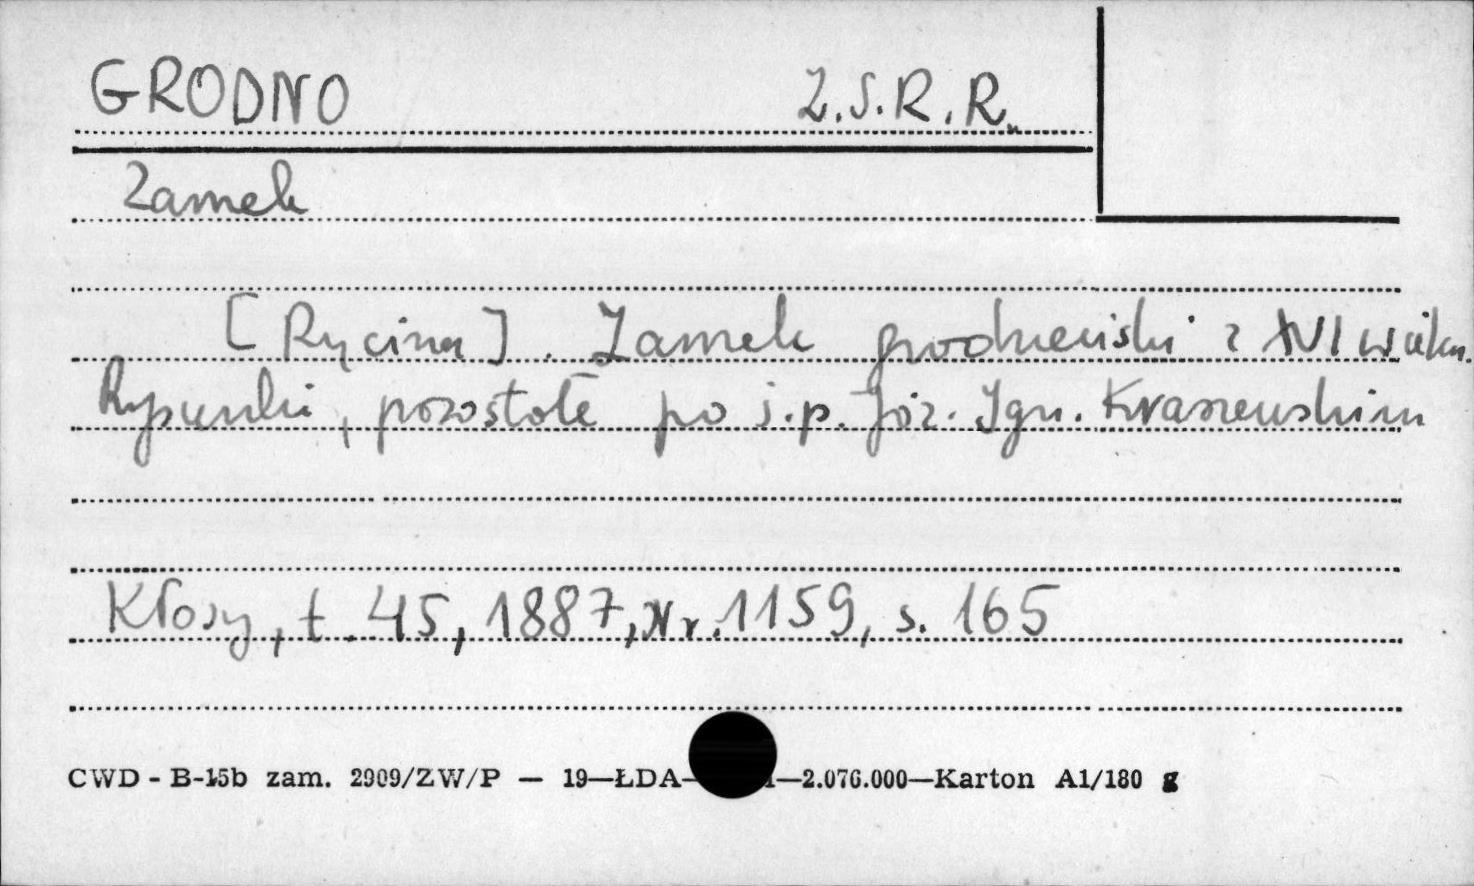 GRODNO Z.S.R.R.
Zamek
[Rycina]. Zamek grodzieński z XVI wieku.
Rysunki, pozostałe po ś.p. Józ. Ign. Kraszewskim
Kłosy, t. 45, 1887, Nr. 1159, s. 165
CWD - B-15b zam. 2909/ZW/P — 19—ŁDA— —2.076.000—Karton A1/180 g